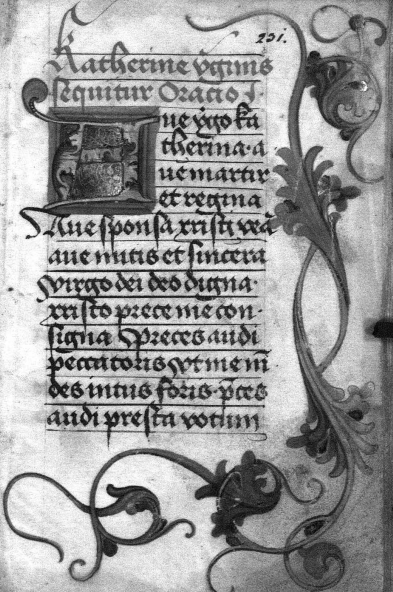 231.
Katherine v̄ginis
sequitur Oracio
Aue v̄go ka
therina · a
ue martir
et regina
Aue sponsa xristi vea
aue mitis et sincera
virgo dei deo digna ·
xristo prece me con-
signa Preces audi
peccatoris vt me m̄
des intus foris · p̄ces
audi presta votum